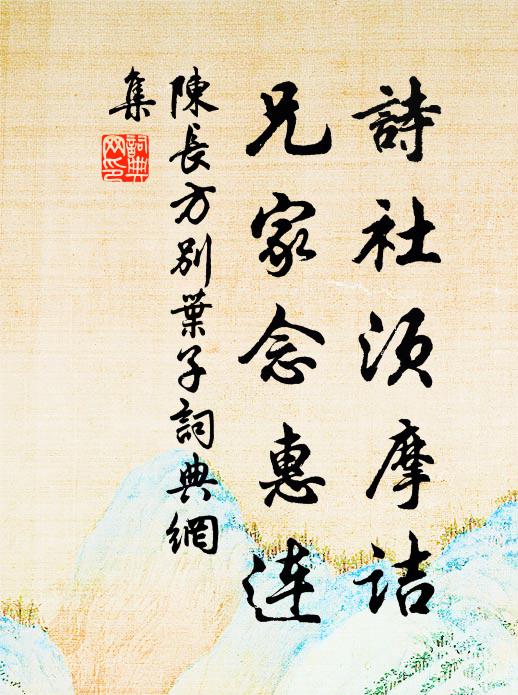 詩社須摩詰
兄家念惠连
陳長方別葉子詞典網
集
詞典
网印